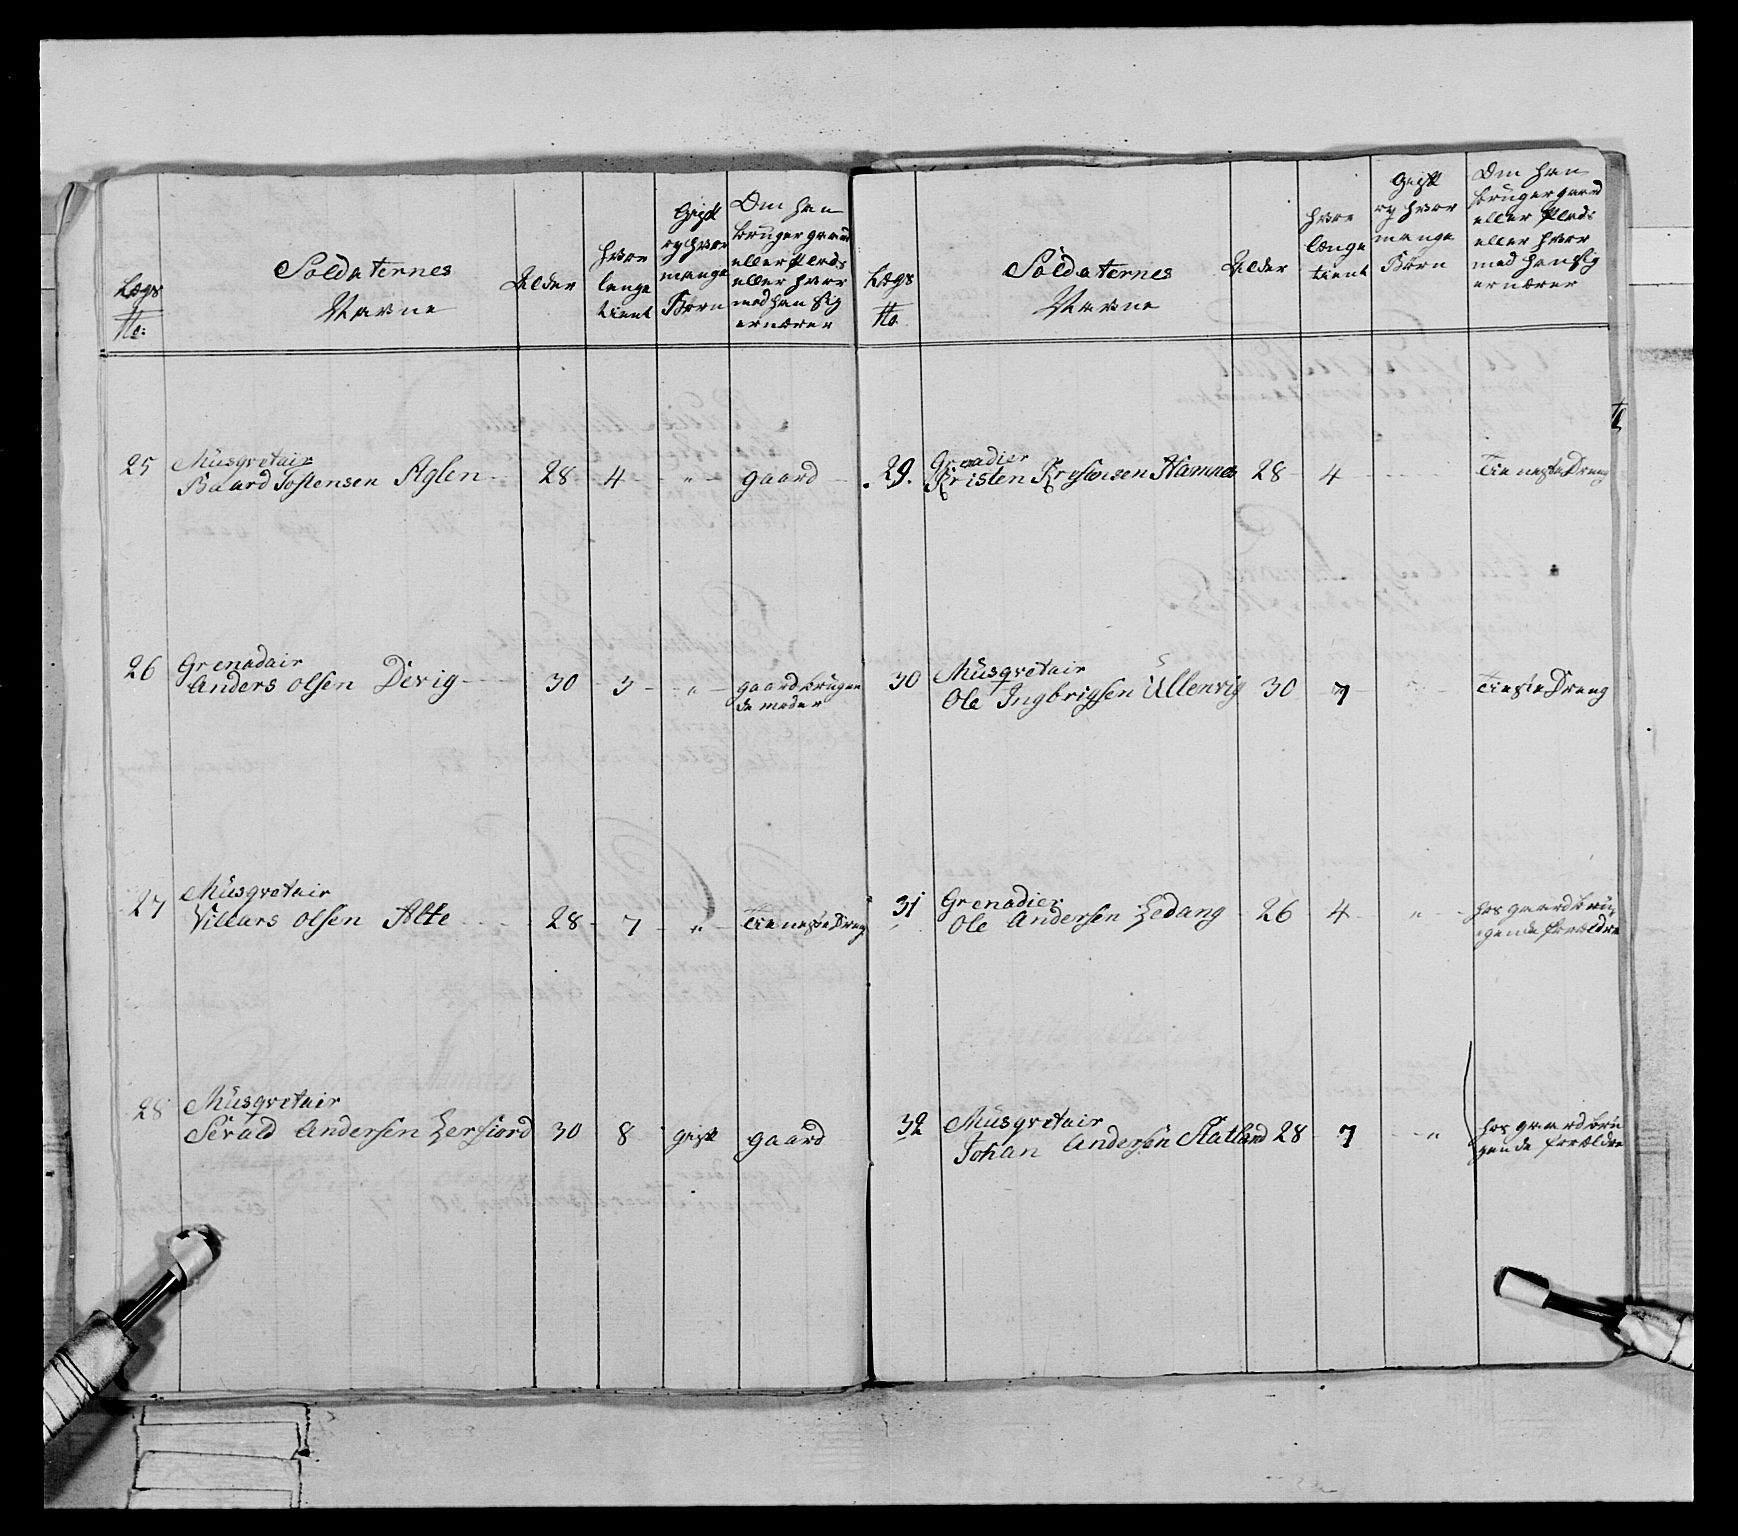 Lægs
No:
Soldaternes
Navne
Alder
hvor
lenge
tient
Gift
og hvor
mange
Børn
Om han
bruger gaard
eller Plads
eller hvor
med han sig
ernærer
25
Musqvetair
Baard Tostensen Aglen
28
4
"
gaard
26
Grenadair
Anders Olsen Devig
30
3
"
gaard brugen
de moder
27
Musqvetair
Villars Olsen Alte
28
7
"
Tieneste Dreng
28
Musqvetair
Serald Andersen Lersiord
30
8
gift
gaard
Lægs
No
Soldaternes
Navne
Alder
hvor
længe
tient
Gift
og hvor
mange
Børn
Om han
bruger gaard
eller Plads
eller hvor
med han sig
ernærer
29.
Grenadier
Kristen Hamnes
28
4
Tieneste Dreng
30
Musqvetair
Ole Ingbrigsen Ullenvig
30
7
Tieste Dreng
31
Grenadier
Ole Andersen Ledang
26
4
"
hos gaard brü-
gende forældre
32
Musqvetair
Johan Andersen Statland
28
7
"
hos gaard brü
gende forældre